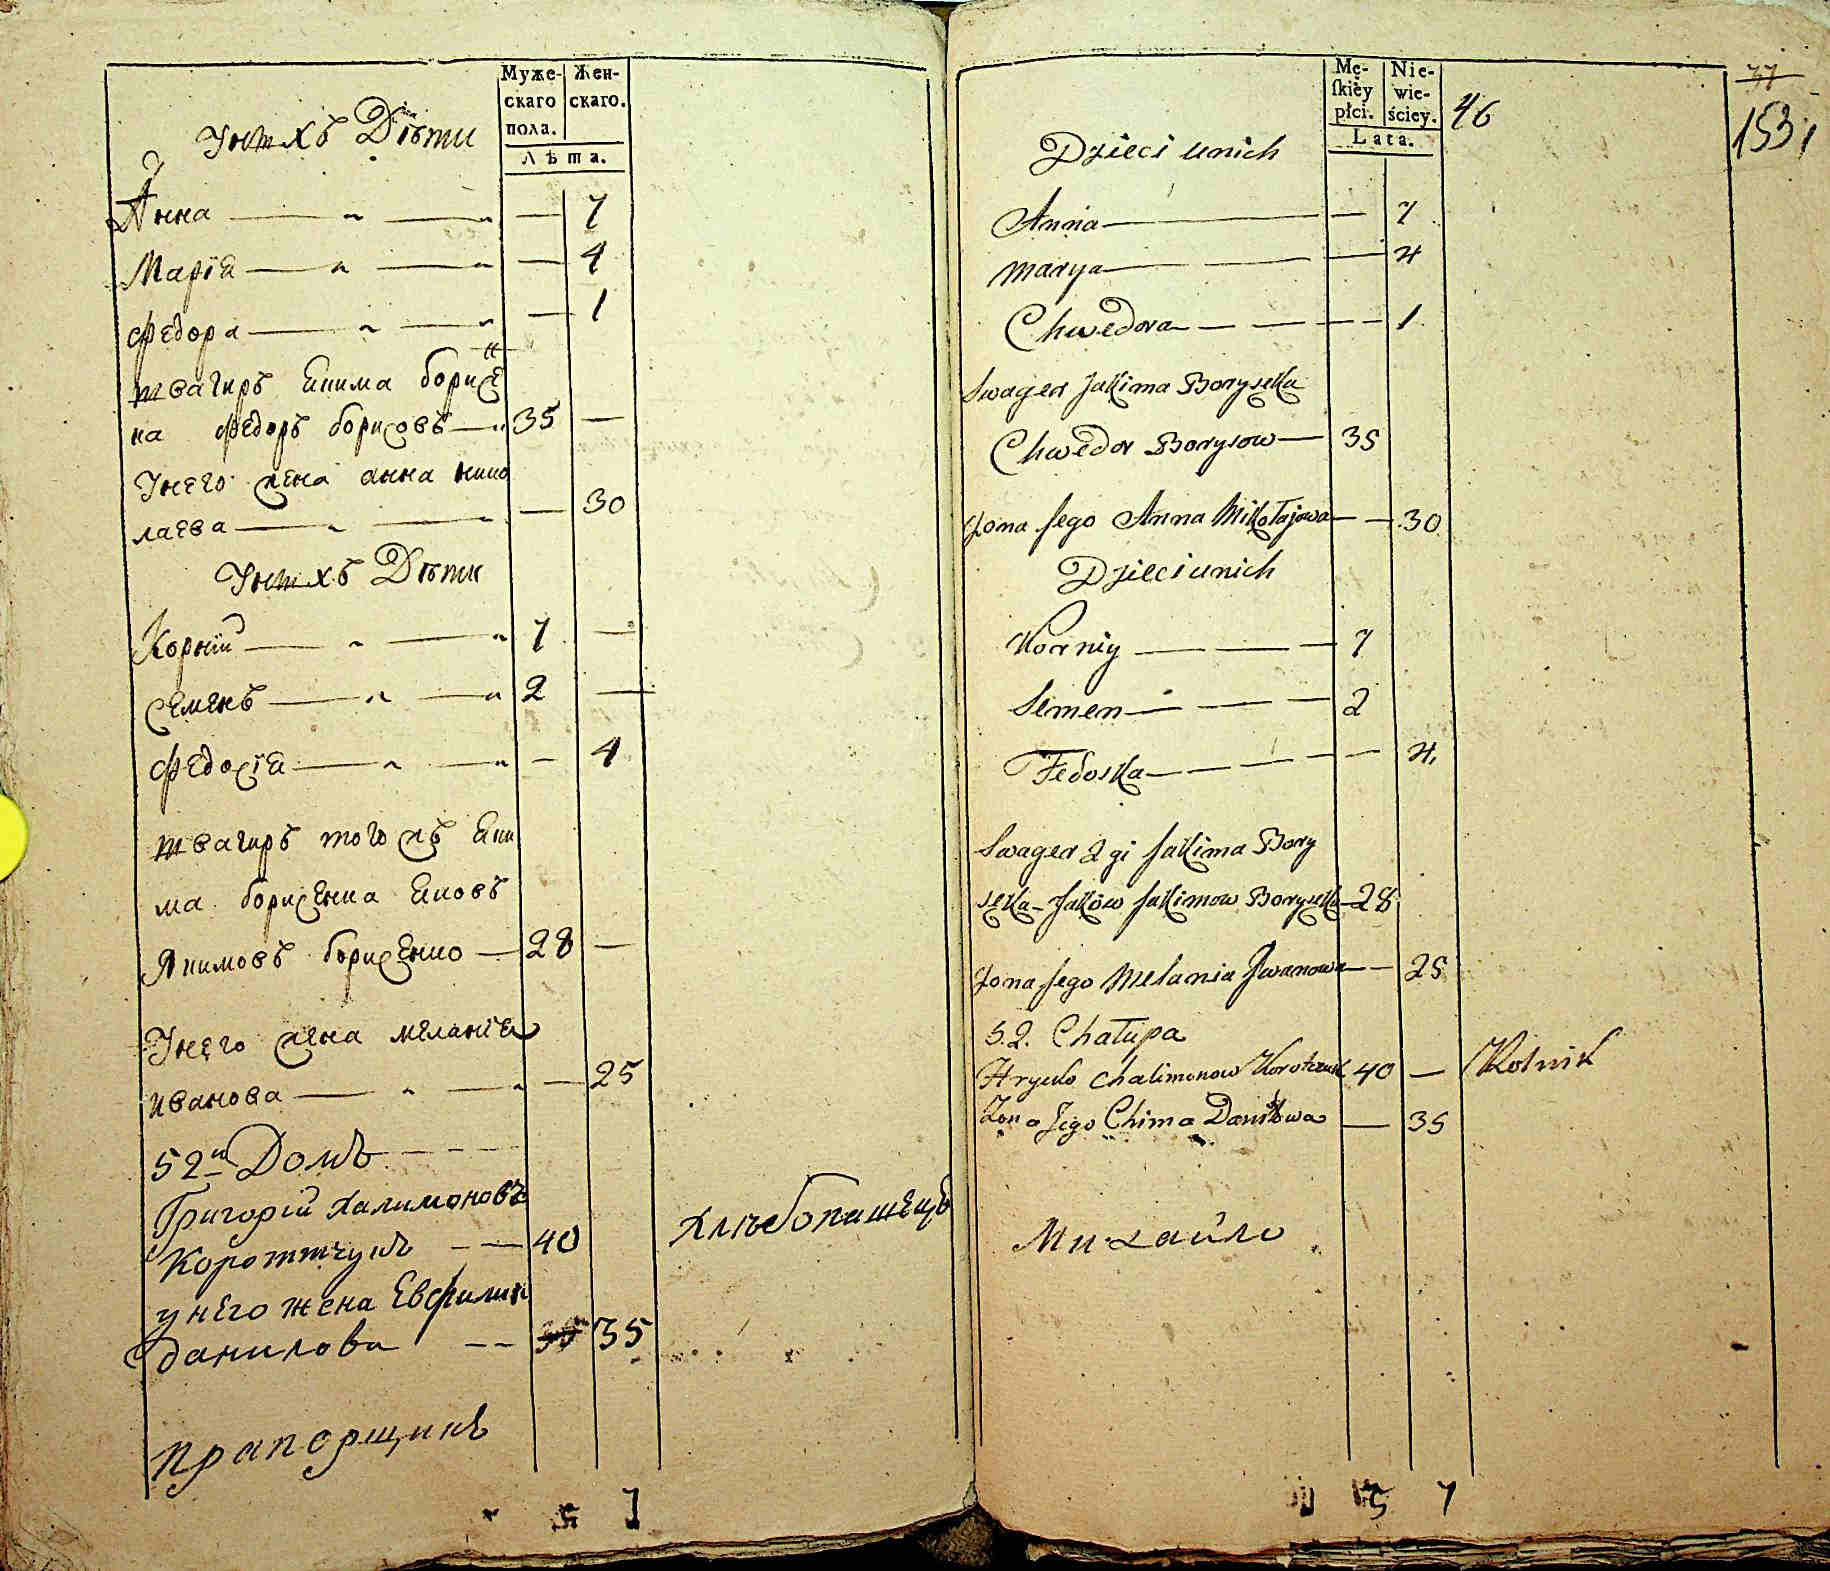 Муже-
скаго
пола.
Жен-
скаго.
Лѣта.
У нихъ Дѣти
Анна — 7
Марїа — 4
Федора — 1
швагиръ Якима борисен
ка Федоръ борисовъ — 35 —
У него жена анна нико
лаева — 30
У нихъ Дѣти
Корнїй — 7 —
Семенъ — 2 —
Федосїа — 4
швагиръ того жъ Яки
ма борисенка Яковъ
Якимовъ борисенко — 28 —
У него жена меланїя
иванова — 25
52й Домъ
Григорїй Халимоновъ
Коротчукъ — 40 хлѣбопашецъ
у него жена Евфимия
данилова — 35
прапорщикъ
5 7
Mę-
skiey
płci.
Nie-
wie-
ściey.
Lata.
46
37
153
Dzieci unich
Anna — 7
Marya — 4
Chwedora — 1
Swager Jakima Boryseka
Chwedor Borysow — 35
Zona Jego Anna Mikołajowa — 30
Dzieci unich
Korniy — 7
Semen — 2
Fedoska — 4
Swager 2gi Jakima Bory
seka Jaków Jakimow Boryseko — 28
Zona Jego Melania Jwanowa — 25
52. Chałupa
Hrycko Chalimonow Korotczuk 40 — Rolnik
Zona Jego Chima Daniłowa — 35
Михайло
5 7